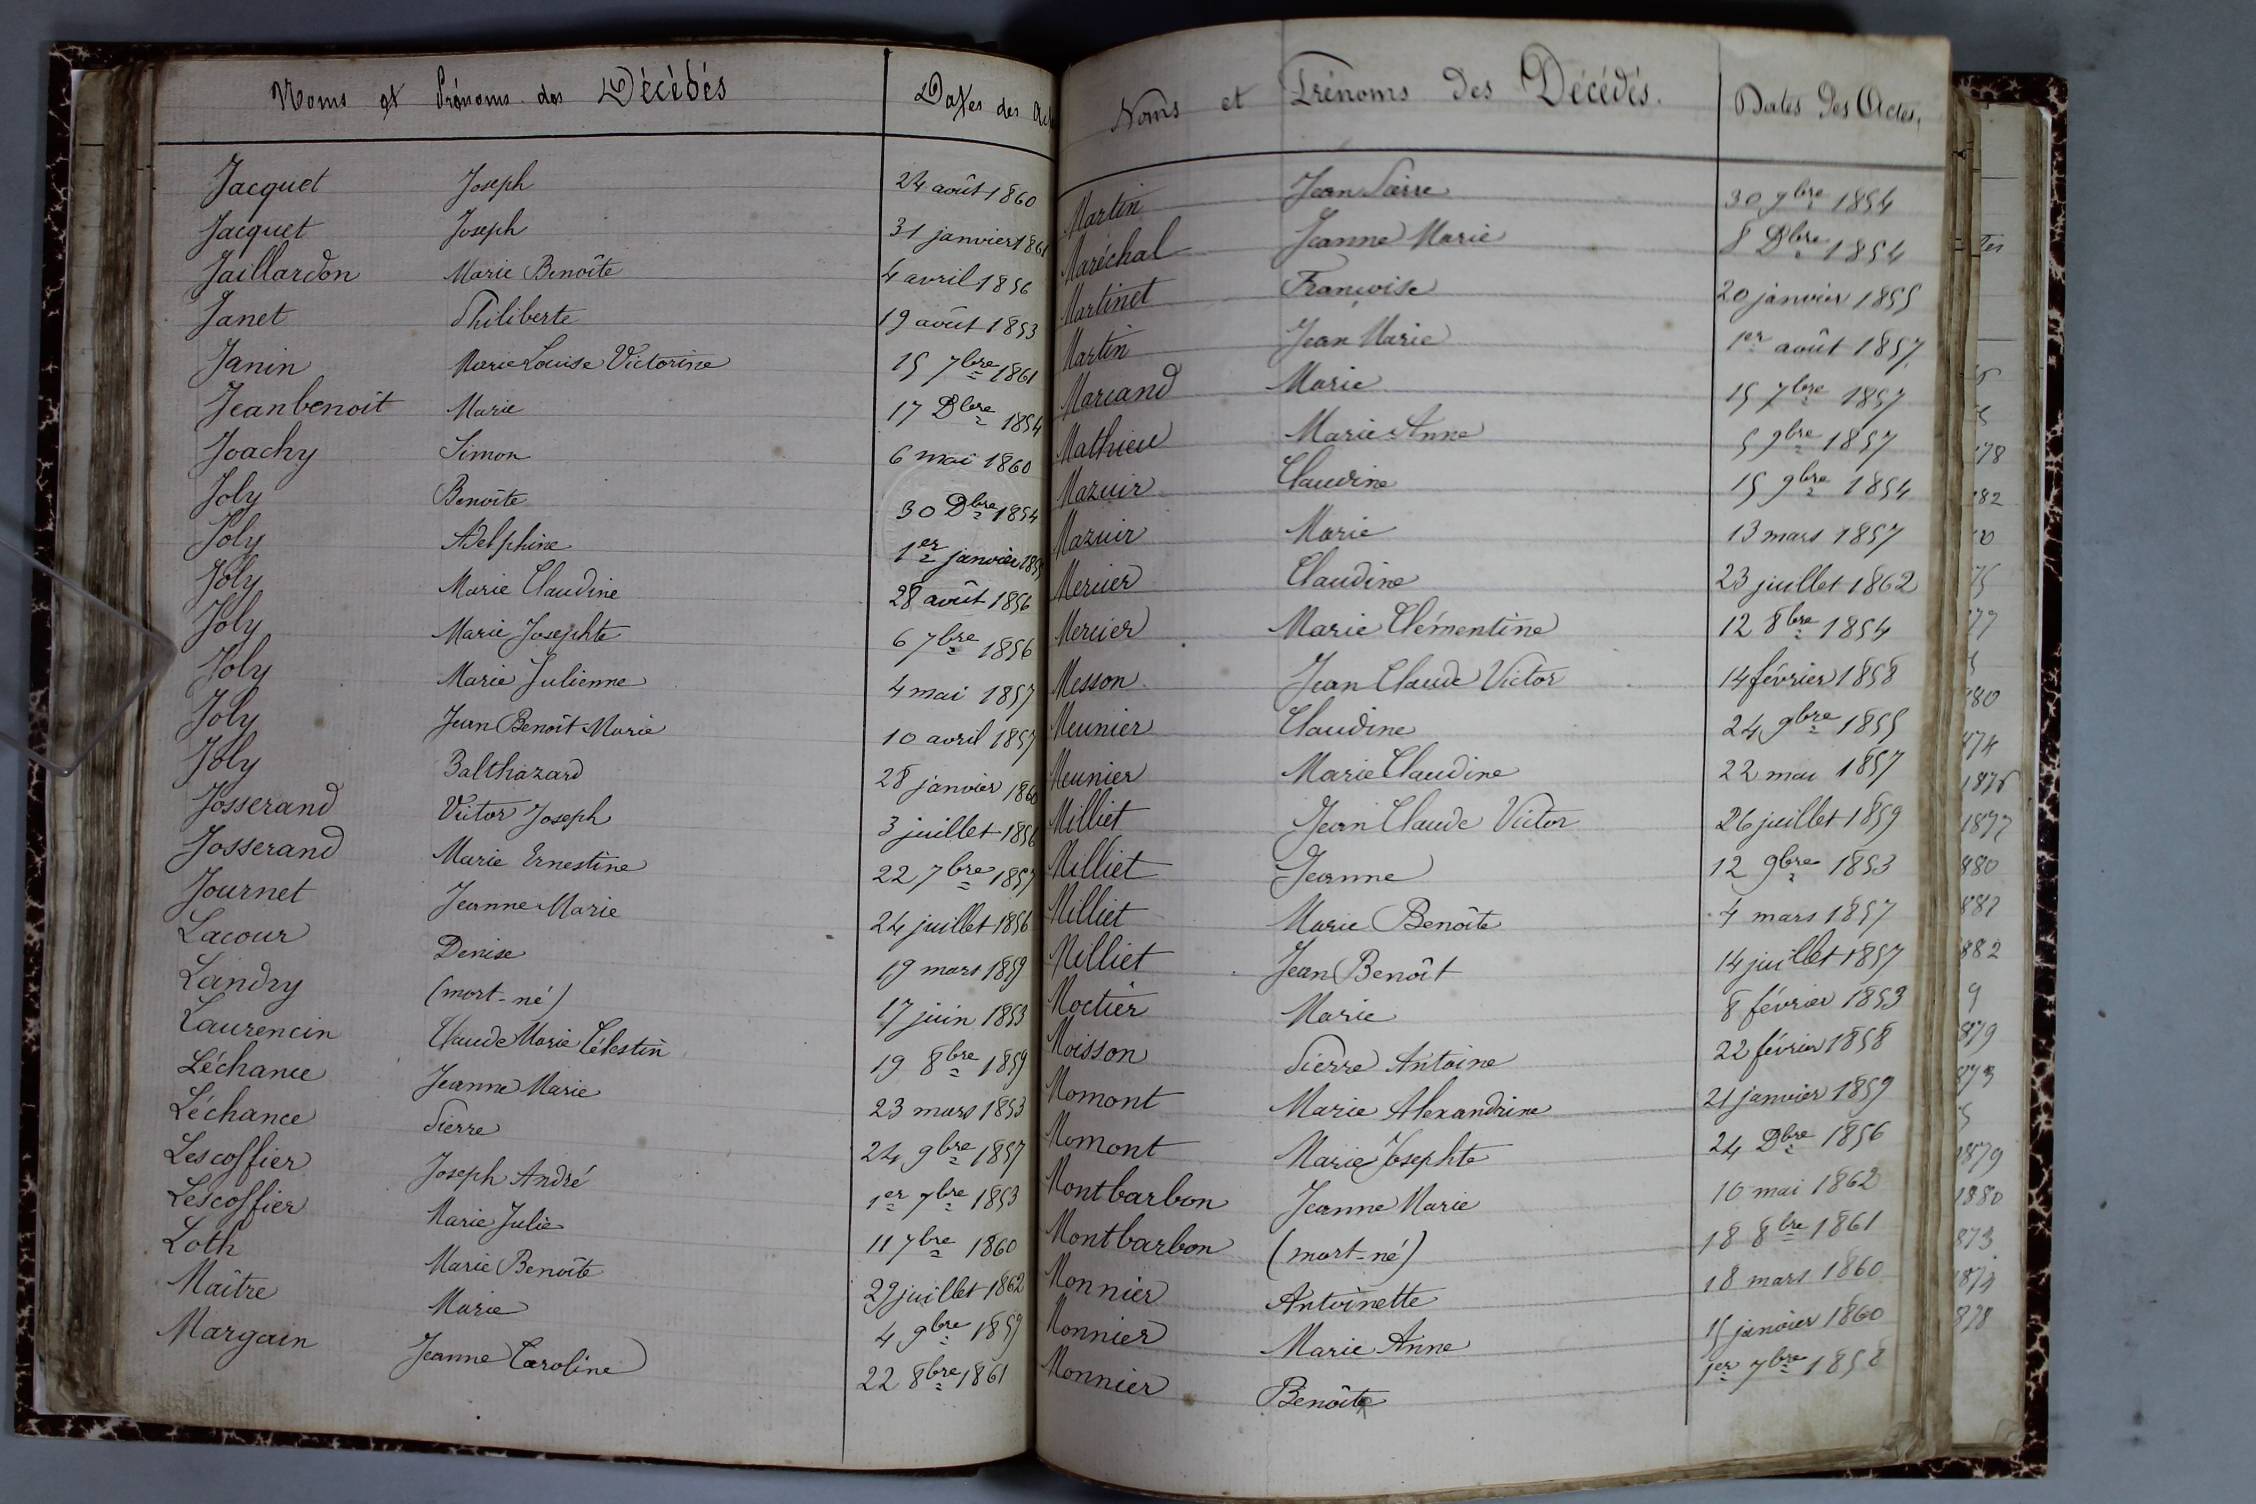 Noms et Prénoms des Décédés Dates des Act
Jacquet Joseph 24 août 1860
Jacquet Joseph 31 janvier 1861
Jaillardon Marie Benoîte 4 avril 1856
Janet Philiberte 19 août 1853
Janin Marie Louise Victorine 15 7bre 1861
Jeanbenoit Marie 17 Dbre 1854
Joachy Simon 6 mai 1860
Joly Benoîte 30 Dbre 1854
Joly Adelphine 1er janvier
Joly Marie Claudine 28 août 1856
Joly Marie Josephte 6 7bre 1856
Joly Marie Julienne 4 mai 1857
Joly Jean Benoît Marie 10 avril 1857
Joly Balthazard 28 janvier 1860
Josserand Victor Joseph 3 juillet 1856
Josserand Marie Ernestine 22 7bre 1857
Journet Jeanne Marie 24 juillet 1856
Lacour Denise 19 mars 1859
Landry (mort-né) 17 juin 1853
Laurencin Claude Marie Célestin 19 8bre 1859
Léchance Jeanne Marie 23 mars 1853
Léchance Pierre 24 9bre 1857
Lescoffier Joseph André 1er 7bre 1853
Lescoffier Marie Julie 11 7bre 1860
Loth Marie Benoîte 29 juillet 1862
Maître Marie 4 9bre 1859
Margain Jeanne Caroline 22 8bre 1861
Noms et Prénoms des Décédés. Dates des Actes.
Martin Jean Pierre 30 9bre 1854
Maréchal Jeanne Marie 8 Dbre 1854
Martinet Françoise 20 janvier 1855
Martin Jean Marie 1er août 1857
Marcand Marie 15 7bre 1857
Mathieu Marie Anne 5 9bre 1857
Mazuir Claudine 15 9bre 1854
Mazuir Marie 13 mars 1857
Mercier Claudine 23 juillet 1862
Mercier Marie Clémentine 12 8bre 1854
Messon Jean Claude Victor 14 février 1858
Meunier Claudine 24 9bre 1855
Meunier Marie Claudine 22 mai 1857
Milliet Jean Claude Victor 26 juillet 1859
Milliet Jeanne 12 9bre 1853
Milliet Marie Benoîte 4 mars 1857
Milliet Jean Benoît 14 juillet 1857
Moctier Marie 8 février 1853
Moisson Pierre Antoine 22 février 1858
Momont Marie Alexandrine 21 janvier 1859
Momont Marie Josephte 24 Dbre 1856
Montbarbon Jeanne Marie 10 mai 1862
Montbarbon (mort-né) 18 8bre 1861
Monnier Antoinette 18 mars 1860
Monnier Marie Anne 15 janvier 1860
Monnier Benoîte 1er 7bre 1858